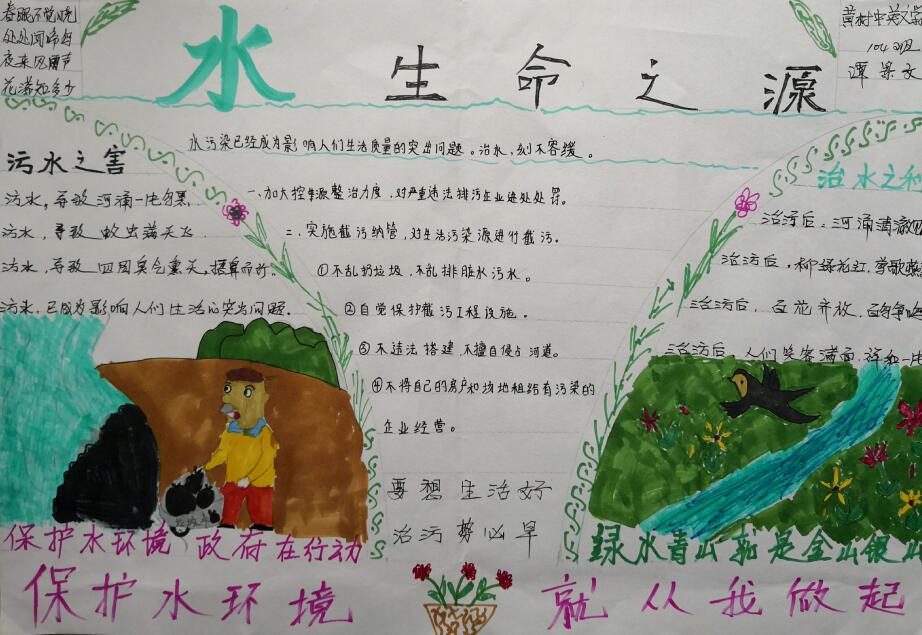 春眠不觉晓
处处闻啼鸟
夜来风雨声
花落知多少
水生命之源
黄村中英文学
104班
谭景文
水污染已经成为影响人们生活质量的突出问题。治水，刻不容缓。
污水之害
污水，导致河涌一片乌黑
污水，导致蚊虫满天飞
污水，导致四周臭气熏天，掩鼻而行。
污水，已成为影响人们生活的突出问题。
一、加大控制源整治力度，对严重违法排污企业进处处罚。
二、实施截污纳管，对生活污染源进行截污。
①不乱扔垃圾，不乱排脏水污水。
②自觉保护截污工程设施。
③不违法搭建，不擅自侵占河道。
④不得自己的房户和场地租给有污染的
企业经营。
要想生活好
治污势必早
治水之和
治污后：河涌清澈
治污后，柳绿花红，莺歌燕
治污后，百花齐放，百鸟争
治污后，人们笑容满面，祥和一片
保护水环境 政府在行动
绿水青山就是金山银山
保护水环境
就从我做起